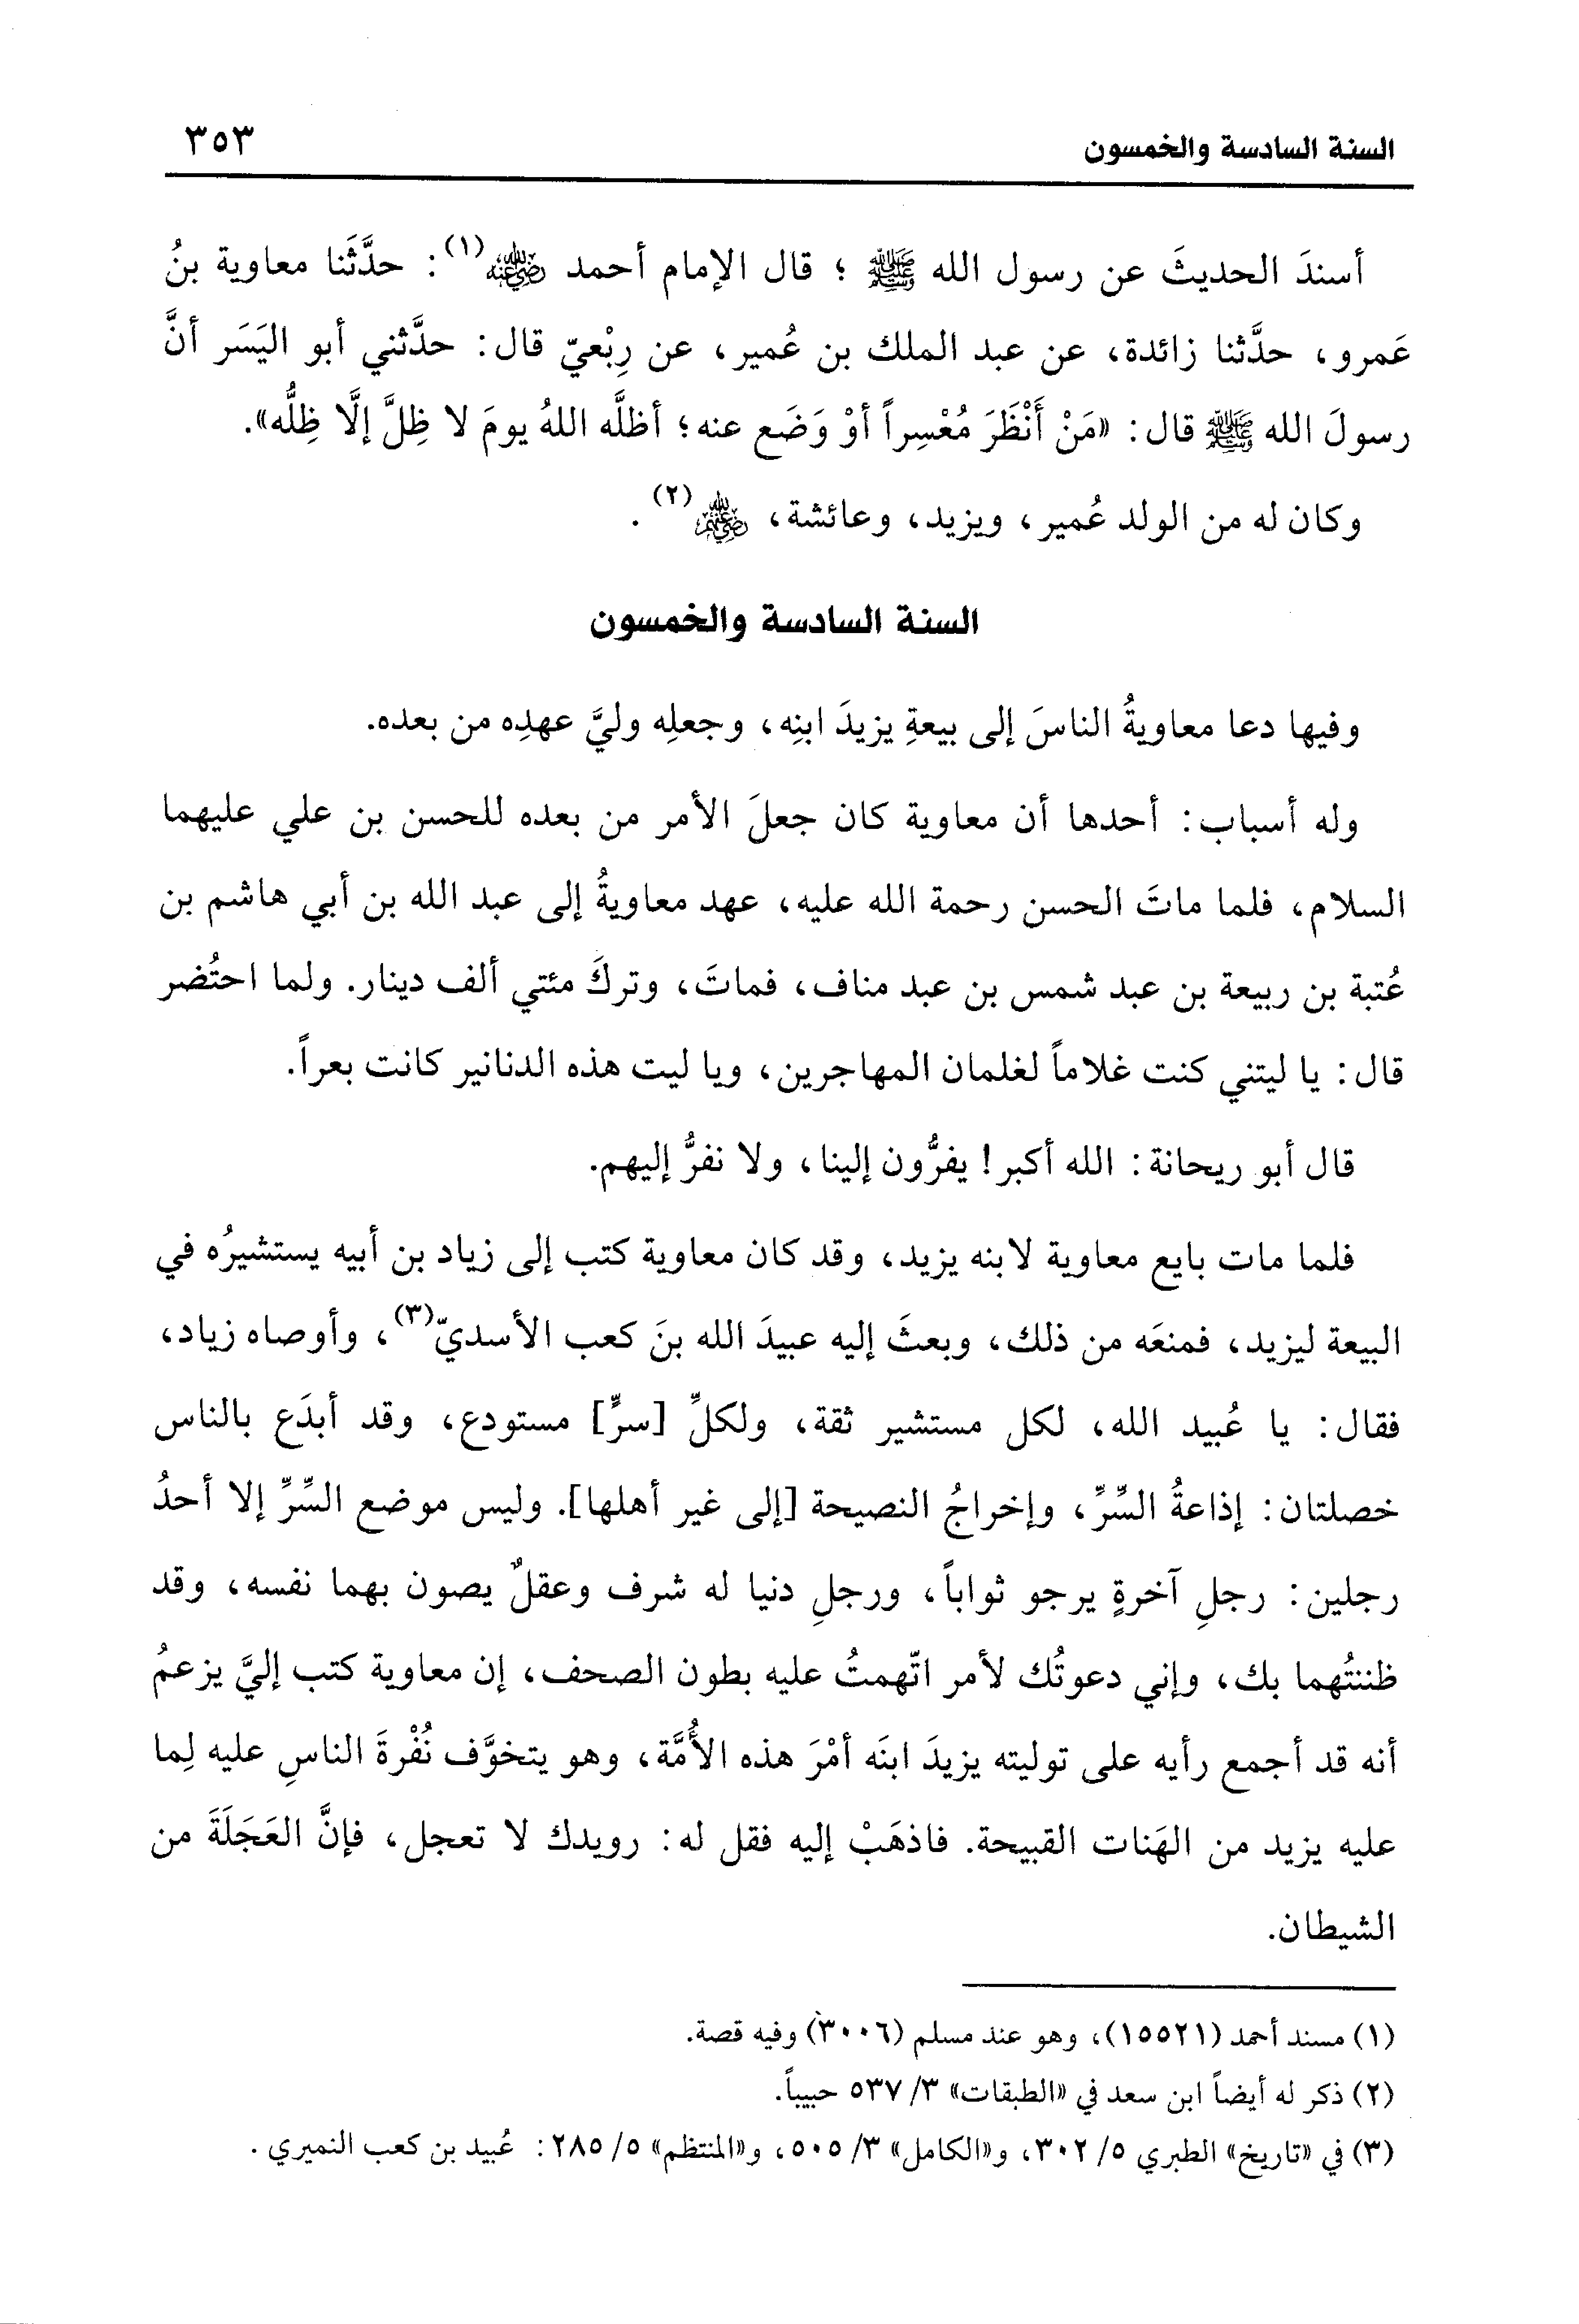 السنة السادسة والخمسون ٣٥٣
أسندَ الحديثَ عن رسول الله ﷺ ؛ قال الإمام أحمد رضي الله عنه(١): حدَّثَنا معاوية بنُ
عَمرو، حدَّثنا زائدة، عن عبد الملك بن عُمير، عن رِبْعيّ قال: حدَّثني أبو اليَسَر أنَّ
رسولَ الله ﷺ قال: «مَنْ أَنْظَرَ مُعْسِراً أوْ وَضَع عنه؛ أظلَّه اللهُ يومَ لا ظِلَّ إلَّا ظِلُّه».
وكان له من الولد عُمير، ويزيد، وعائشة، رضي الله عنهم(٢).
السنة السادسة والخمسون
وفيها دعا معاويةُ الناسَ إلى بيعةِ يزيدَ ابنِه، وجعلِه وليَّ عهدِه من بعده.
وله أسباب: أحدها أن معاوية كان جعلَ الأمر من بعده للحسن بن علي عليهما
السلام، فلما ماتَ الحسن رحمة الله عليه، عهد معاويةُ إلى عبد الله بن أبي هاشم بن
عُتبة بن ربيعة بن عبد شمس بن عبد مناف، فماتَ، وتركَ مئتي ألف دينار. ولما احتُضر
قال: يا ليتني كنت غلاماً لغلمان المهاجرين، ويا ليت هذه الدنانير كانت بعراً.
قال أبو ريحانة: الله أكبر! يفرُّون إلينا، ولا نفرُّ إليهم.
فلما مات بايع معاوية لابنه يزيد، وقد كان معاوية كتب إلى زياد بن أبيه يستشيرُه في
البيعة ليزيد، فمنعَه من ذلك، وبعثَ إليه عبيدَ الله بنَ كعب الأسديّ(٣)، وأوصاه زياد،
فقال: يا عُبيد الله، لكل مستشير ثقة، ولكلِّ [سرٍّ] مستودع، وقد أبدَع بالناس
خصلتان: إذاعةُ السِّرِّ، وإخراجُ النصيحة [إلى غير أهلها]. وليس موضع السِّرِّ إلا أحدُ
رجلين: رجلِ آخرةٍ يرجو ثواباً، ورجلِ دنيا له شرف وعقلٌ يصون بهما نفسه، وقد
ظننتُهما بك، وإني دعوتُك لأمر اتّهمتُ عليه بطون الصحف، إن معاوية كتب إليَّ يزعمُ
أنه قد أجمع رأيه على توليته يزيدَ ابنَه أمْرَ هذه الأُمَّة، وهو يتخوَّف نُفْرةَ الناسِ عليه لِما
عليه يزيد من الهَنات القبيحة. فاذهَبْ إليه فقل له: رويدك لا تعجل، فإنَّ العَجَلَةَ من
الشيطان.
(١) مسند أحمد (١٥٥٢١)، وهو عند مسلم (٣٠٠٦) وفيه قصة.
(٢) ذكر له أيضاً ابن سعد في «الطبقات» ٣/ ٥٣٧ حبيباً.
(٣) في «تاريخ» الطبري ٥/ ٣٠٢، و«الكامل» ٣/ ٥٠٥، و«المنتظم» ٥/ ٢٨٥: عُبيد بن كعب النميري.